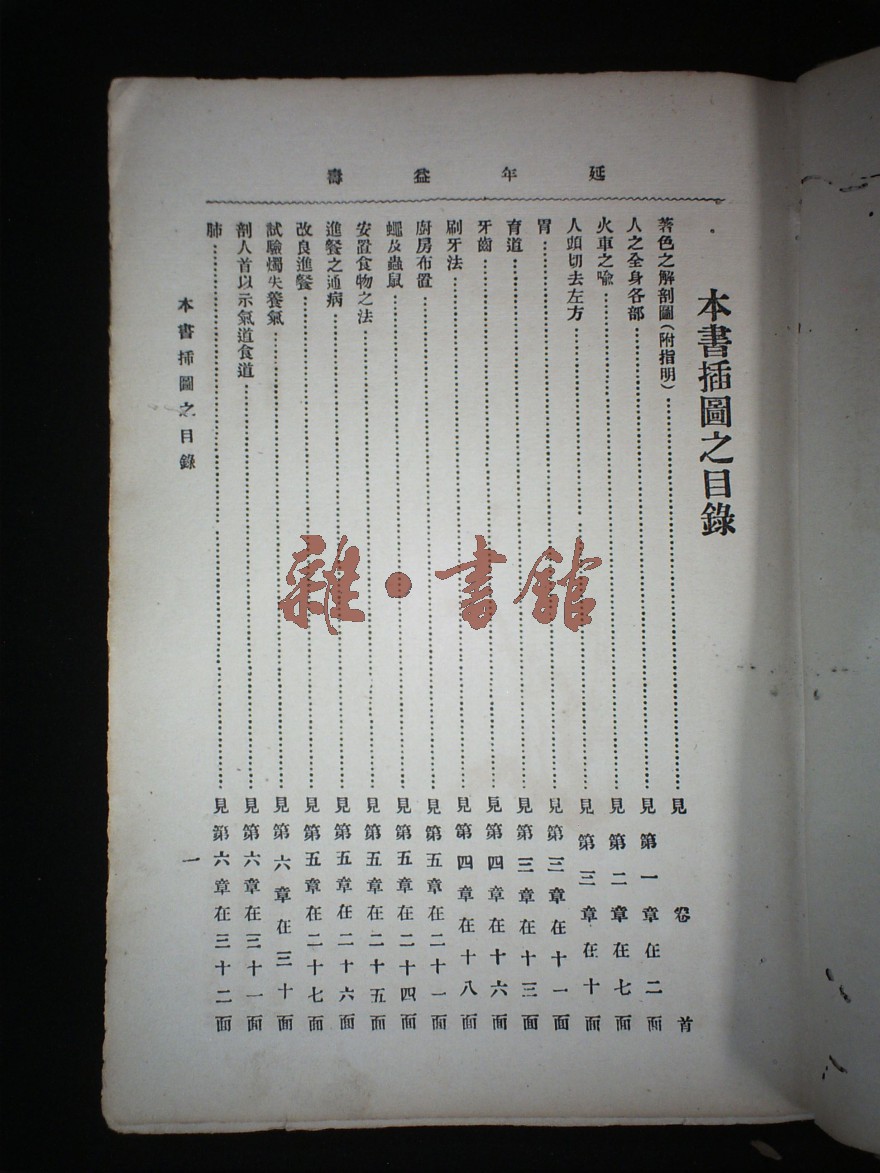 延年益壽
本書插圖之目錄
著色之解剖圖(附指明)見卷首
人之全身各部見第一章在二面
火車之喩見第二章在七面
人頭切去左方見第三章在十面
胃見第三章在十一面
育道見第三章在十三面
牙齒見第四章在十六面
刷牙法見第四章在十八面
廚房布置見第五章在二十一面
蠅及蟲鼠見第五章在二十四面
安置食物之法見第五章在二十五面
進餐之通病見第五章在二十六面
改良進餐見第五章在二十七面
試驗燭失養氣見第六章在三十面
剖人首以示氣道食道見第六章在三十一面
肺見第六章在三十二面
本書揷圖之目錄
一
雜·書館